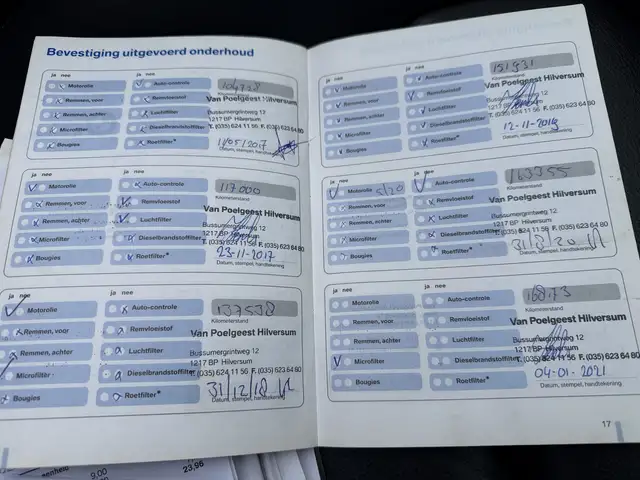 Bevestiging uitgevoerd onderhoud
ja nee ja nee
Motorolie Auto-controle
Remmen, voor Remvloeistof Van Poelgeest Hilversum
Remmen, achter Luchtfilter Bussumergrintweg 12
1217 BP Hilversum
Microfilter Dieselbrandstoffilter T. (035) 624 11 56 F. (035) 623 64 80
Bougies Roetfilter* 11/05/2017
Datum, stempel, handtekening
ja nee ja nee
Motorolie Auto-controle 117000
Kilometerstand
Remmen, voor Remvloeistof Van Poelgeest Hilversum
Remmen, achter Luchtfilter Bussumergrintweg 12
1217 BP Hilversum
Microfilter Dieselbrandstoffilter T. (035) 624 11 56 F. (035) 623 64 80
Bougies Roetfilter* 23-11-2017
Datum, stempel, handtekening
ja nee ja nee
Motorolie Auto-controle 137538
Kilometerstand
Remmen, voor Remvloeistof Van Poelgeest Hilversum
Remmen, achter Luchtfilter Bussumergrintweg 12
1217 BP Hilversum
Microfilter Dieselbrandstoffilter T. (035) 624 11 56 F. (035) 623 64 80
Bougies Roetfilter* 31/12/18
Datum, stempel, handtekening
ja nee ja nee
Motorolie Auto-controle 151931
Kilometerstand
Remmen, voor Remvloeistof Van Poelgeest Hilversum
Remmen, achter Luchtfilter Bussumergrintweg 12
1217 BP Hilversum
Microfilter Dieselbrandstoffilter T. (035) 624 11 56 F. (035) 623 64 80
Bougies Roetfilter* 12-11-2019
Datum, stempel, handtekening
ja nee ja nee
Motorolie 5/20 Auto-controle 163355
Kilometerstand
Remmen, voor Remvloeistof Van Poelgeest Hilversum
Remmen, achter Luchtfilter Bussumergrintweg 12
1217 BP Hilversum
Microfilter Dieselbrandstoffilter T. (035) 624 11 56 F. (035) 623 64 80
Bougies Roetfilter*
Datum, stempel, handtekening
ja nee ja nee
Motorolie Auto-controle
Kilometerstand
Remmen, voor Remvloeistof Van Poelgeest Hilversum
Remmen, achter Luchtfilter Bussumergrintweg 12
1217 BP Hilversum
Microfilter Dieselbrandstoffilter T. (035) 624 11 56 F. (035) 623 64 80
Bougies Roetfilter* 04-01-2021
Datum, stempel, handtekening
17
9,00
23,96